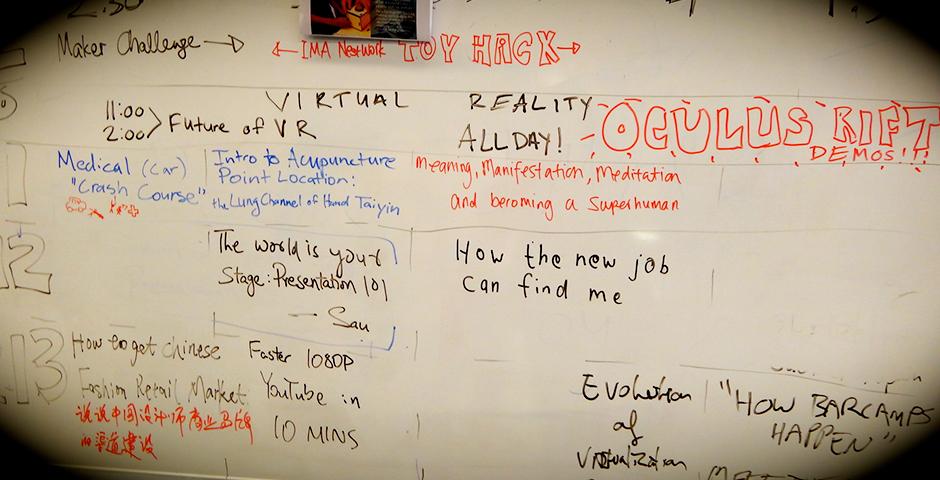 2:30
Maker Challenge → ← IMA Network TOY HACK →
VIRTUAL REALITY
11:00
2:00
Future of VR
ALLDAY!
OCULUS RIFT
DEMOS!!!
Medical (car)
"Crash Course"
Intro to Acupuncture
Point Location:
the Lung Channel of Hand Taiyin
Meaning, Manifestation, Meditation
and becoming a Superhuman
12
The world is your
Stage: Presentation 101
— Sau
How the new job
can find me
13
How to get chinese
Fashion Retail Market
说说中国设计师商业品牌
的渠道建设
Faster 1080P
YouTube in
10 MINS
Evolution
of
Virtualization
"HOW BARCAMPS
HAPPEN"